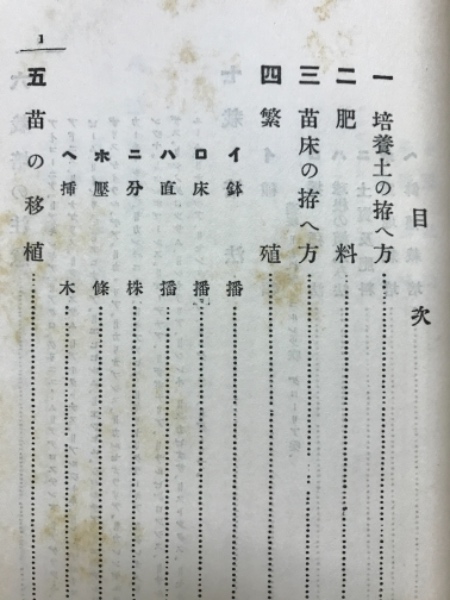 目次
一 培養土の拵へ方
二 肥料
三 苗床の拵へ方
四 繁殖
イ 鉢播
ロ 床播
ハ 直播
ニ 分株
ホ 壓條
ヘ 揷木
五 苗の移植
1